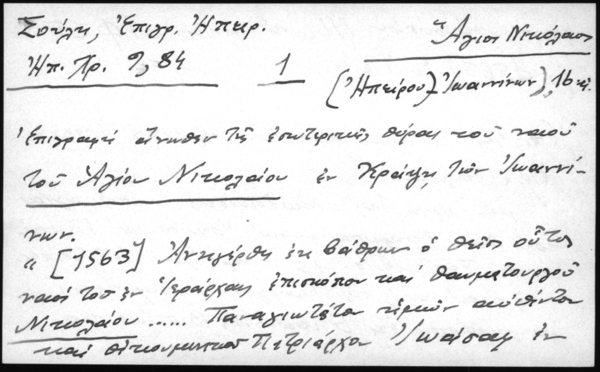 Σούλη, Ἐπιγρ. Ἠπειρ. Ἅγιος Νικόλαος
Ἠπ. Χρ. 9, 84 1 (Ἠπείρου)-Ἰωαννίνων), 16 αἰ.
Ἐπιγραφὴ ἄνωθεν τῆς ἐσωτερικῆς θύρας τοῦ ναοῦ
τοῦ Ἁγίου Νικολάου ἐν Κράψῃ τῶν Ἰωαννί-
νων.
« [1563] Ἀνηγέρθη ἐκ βάθρων ὁ θεῖος οὗτος
ναὸς τοῦ ἐν Ἱεράρχαις ἐπισκόπου καὶ θαυματουργοῦ
Νικολάου ...... Παναγιωτάτου ἡμῶν αὐθέντου
καὶ οἰκουμενικοῦ Πατριάρχου Ἰωάσαφ ἐν